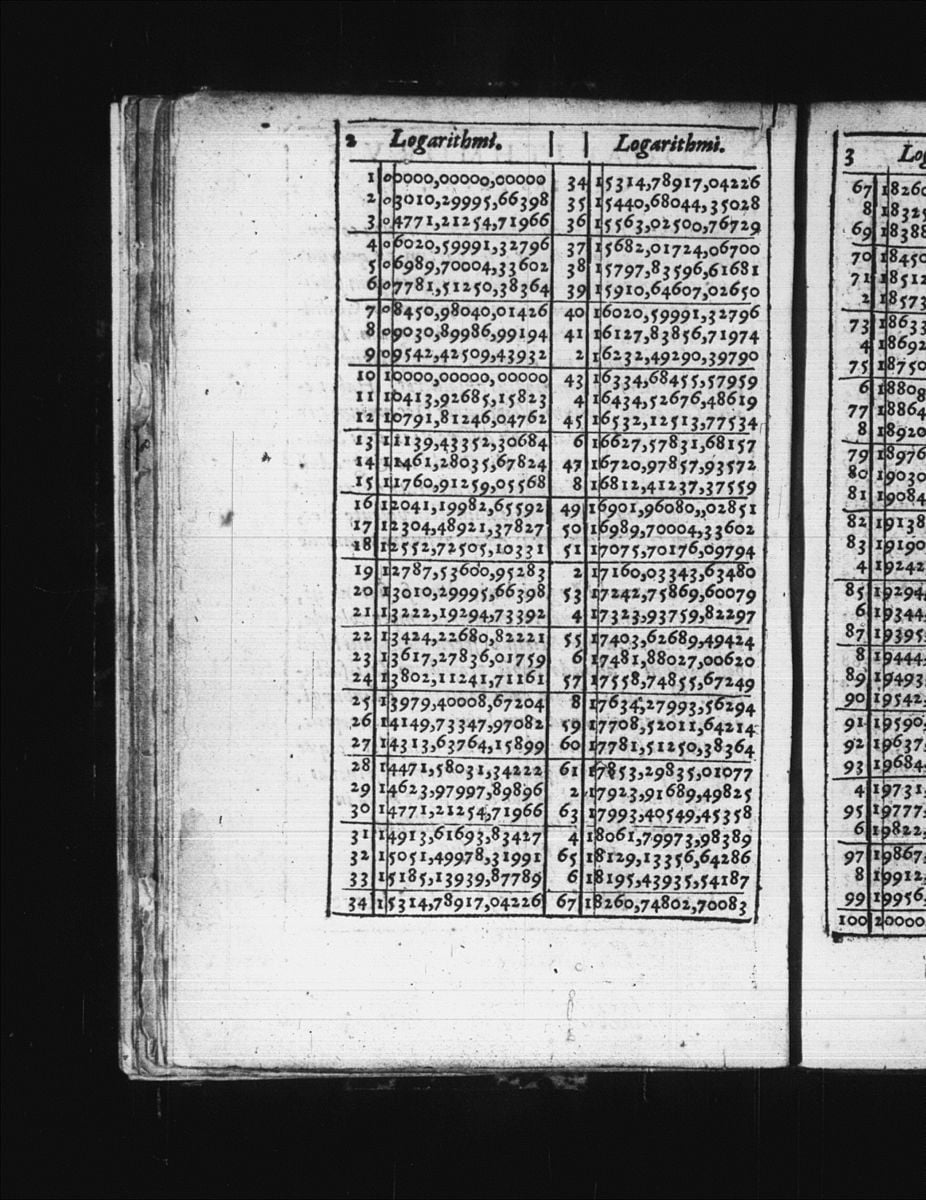 2 Logarithmi. Logarithmi.
1 00000,00000,00000 34 15314,78917,04226
2 03010,29995,66398 35 15440,68044,35028
3 04771,21254,71966 36 15563,02500,76729
4 06020,59991,32796 37 15682,01724,06700
5 06989,70004,33602 38 15797,83596,61681
6 07781,51250,38364 39 15910,64607,02650
7 08450,98040,01426 40 16020,59991,32796
8 09030,89986,99194 41 16127,83856,71974
9 09542,42509,43932 2 16232,49290,39790
10 10000,00000,00000 43 16334,68455,57959
11 10413,92685,15823 4 16434,52676,48619
12 10791,81246,04762 45 16532,12513,77534
13 11139,43352,30684 6 16627,57831,68157
14 11461,28035,67824 47 16720,97857,93572
15 11760,91259,05568 8 16812,41237,37559
16 12041,19982,65592 49 16901,96080,,02851
17 12304,48921,37827 50 16989,70004,33602
18 12552,72505,10331 51 17075,70176,09794
19 12787,53600,95283 2 17160,03343,63480
20 13010,29995,66398 53 17242,75869,60079
21 13222,19294,73392 4 17323,93759,82297
22 13424,22680,82221 55 17403,62689,49424
23 13617,27836,01759 6 17481,88027,00620
24 13802,11241,71161 57 17558,74855,67249
25 13979,40008,67204 8 17634,27993,56294
26 14149,73347,97082 59 17708,52011,64214
27 14313,63764,15899 60 17781,51250,38364
28 14471,58031,34222 61 17853,29835,01077
29 14623,97997,89896 2 17923,91689,49825
30 14771,21254,71966 63 17993,40549,45358
31 14913,61693,83427 4 18061,79973,98389
32 15051,49978,31991 65 18129,13356,64286
33 15185,13939,87789 6 18195,43935,54187
34 15314,78917,04226 67 18260,74802,70083
3 Lo
67 18260
8 18325
69 18388
70 18450
71 18512
2 18573
73 18633
4 18692
75 18750
6 18808
77 18864
8 18920
79 18976
80 19030
81 19084
82 19138
83 19190
4 19242
85 19294,
6 19344,
87 19395,
8 19444,
89 19493,
90 19542,
91 19590,
92 19637,
93 19684,
4 19731,
95 19777,
6 19822,
97 19867,
8 19912,
99 19956,
100 20000